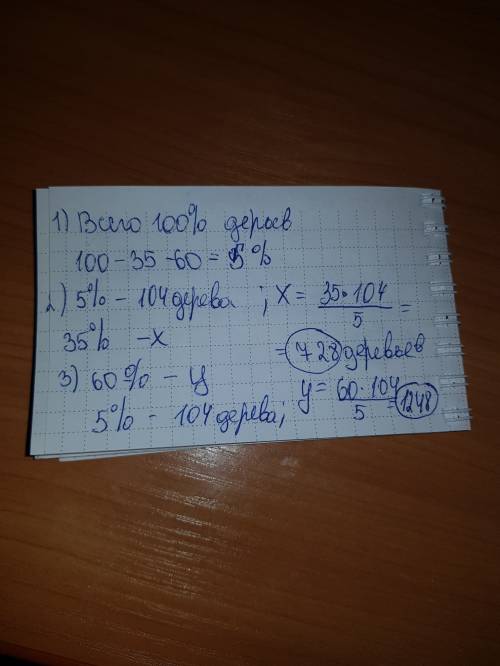 1) Всего 100% дерьев
100 - 35 - 60 = 5%
2) 5% - 104 дерева ; x = 35·104 / 5 =
35% - x
= 728 деревьев
3) 60% - y
y = 60·104 / 5 = 1248
5% - 104 дерева;